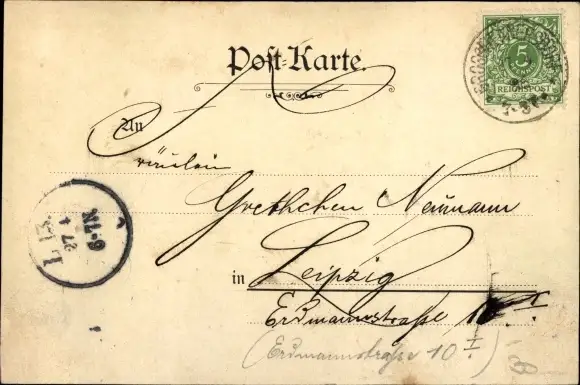 Post-Karte.
5
REICHSPOST
An
Fräulein
Grethchen Neumann
in Leipzig
Erdmannstraße 10 I
(Erdmannstraße 10 I)
L. 13.
27 4
6-7 N.